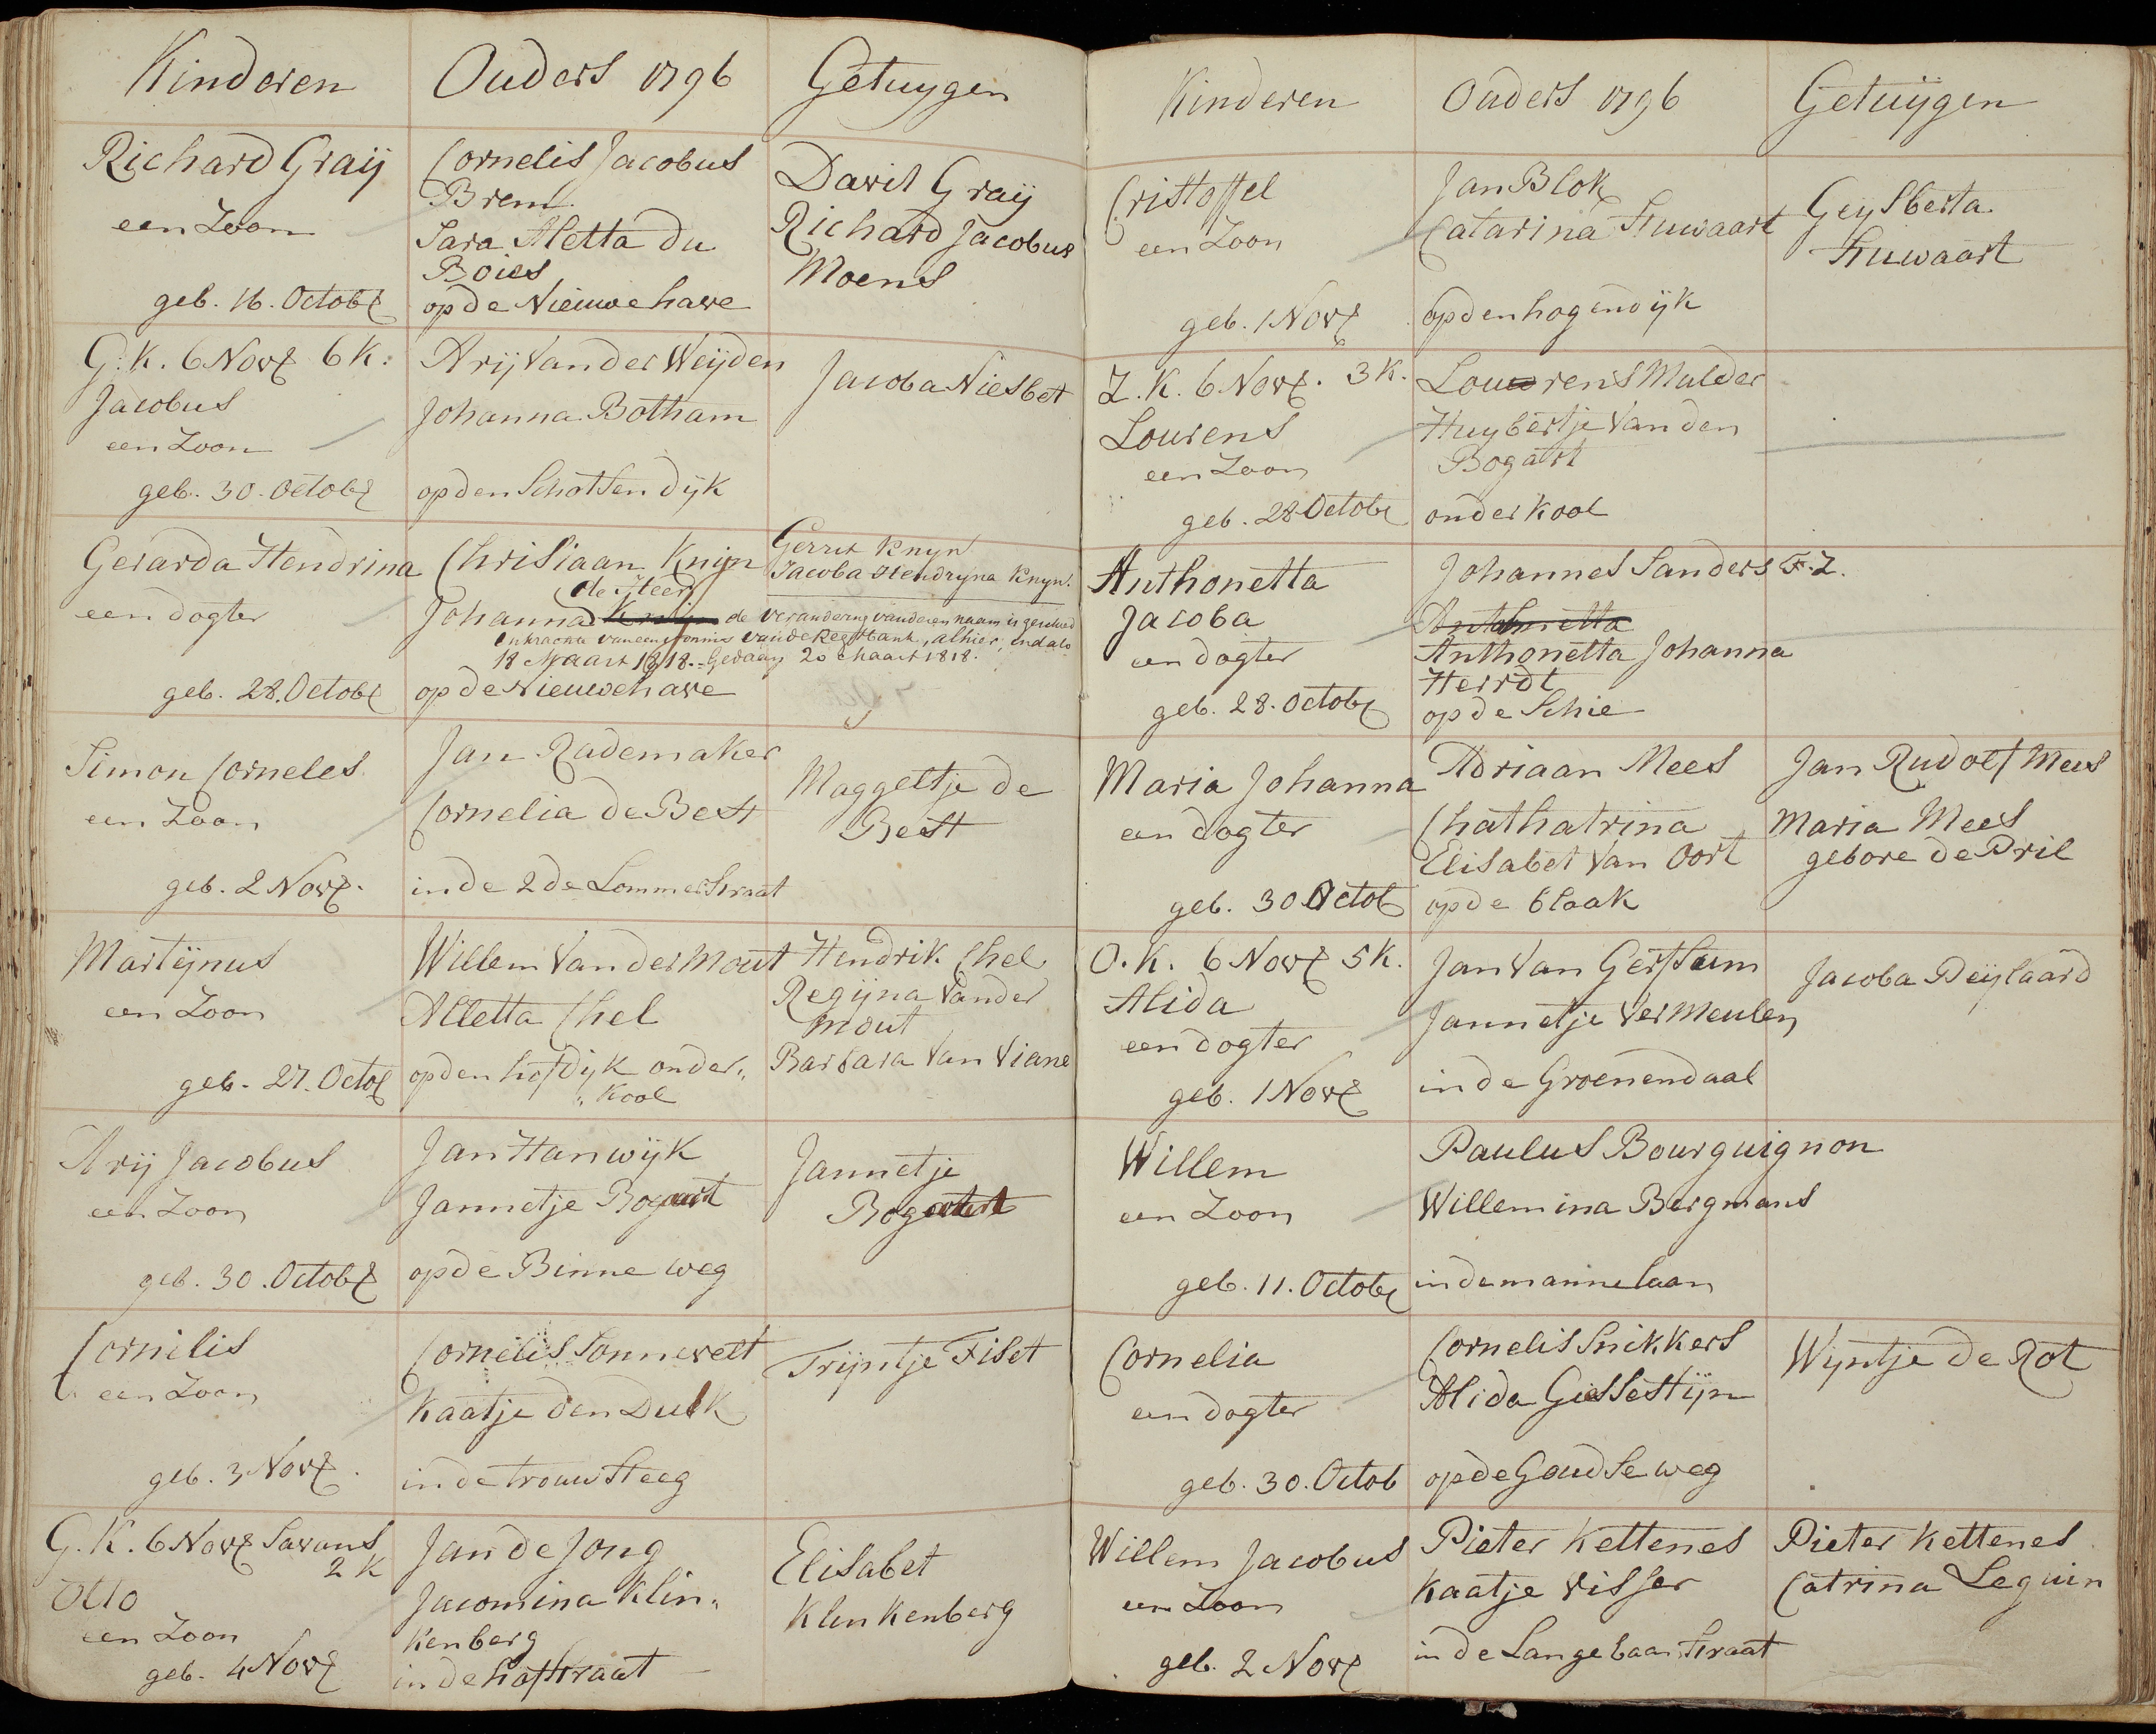 Kinderen Ouders 1796 Getuygen
Richard Graij
een Zoon
geb. 16. Octobr
Cornelis Jacobus
Brem
Sara Aletta du
Boies
op de Nieuwe have
David Graij
Richard Jacobus
Moens
G. K. 6 Novr 6 K:
Jacobus
een Zoon
geb. 30. Octobr
Arij Van der Weijden
Johanna Botham
op den Schotsen dijk
Jacoba Niesbet
Gerarda Hendrina
een dogter
geb. 28. Octobr
Christiaan Knijn
de Heer
Johanna Knijn de verandering van deren naam is geschied
in krachte van een vonnis van de Regtbank, alhier, in dato
18 Maart 1818. Gedaan 20 Maart 1818.
op de Nieuwe have
Gerrit Knyn
Jacoba Hendryna Knyn.
Simon Corneles
een Zoon
geb. 2 Novr.
Jan Rademaker
Cornelia de Best
in de 2de Lommerstraat
Maggeltje de
Best
Martijnus
een Zoon
geb. 27. Octob
Willem Van der Mout
Alletta Chel
op den hofdijk onder„
„Kool
Hendrik Chel
Regijna Vander
Mout
Barbara Van Viane
Arij Jacobus
een Zoon
geb. 30. Octobr
Jan Hanwijk
Jannetje Bogaart
op de Binne weg
Jannetje
Bogaart
Cornilis
een Zoon
geb. 3 Novr.
Cornelis Sonnevelt
Kaatje den Dulk
in de trouw Steeg
Trijntje Fiset
G. K. 6 Novr Savans
2 K
Otto
een Zoon
geb. 4 Novr
Jan de Jong
Jacomina Klin„
kenberg
in de hofstraat
Elisabet
Klinkenberg
Kinderen Ouders 1796 Getuijgen
Cristoffel
een Zoon
geb. 1 Novr
Jan Blok
Catarina Stuwaart
op den hogendijk
Geysberta
Stuwaart
Z. K. 6 Novr. 3 K.
Lourens
een Zoon
geb. 28 Octobr
Lourens Mulder
Huybertje Van den
Bogart
onder Kool
Anthonetta
Jacoba
een dogter
geb. 28. Octobr
Johannes Sanders F. Z.
Anthonetta
Anthonetta Johanna
Herrdt
op de Schie
Maria Johanna
een dogter
geb. 30 Octob
Adriaan Mees
Chathatrina
Elisabet Van Oort
op de blaak
Jan Rudolf Mees
Maria Mees
gebore de Pril
O. K. 6 Novr 5 K.
Alida
een dogter
geb. 1 Novr
Jan Van Gerstum
Jannetje Vermeulen
in de Groenendaal
Jacoba Peijlaard
Willem
een Zoon
geb. 11. Octobr
Paulus Bourguignon
Willemina Bergmans
in de mannelaan
Cornelia
een dogter
geb. 30. Octob
Cornelis Snikkers
Alida Giessestijn
op de Goudse weg
Wyntje de Rot
Willem Jacobus
een Zoon
geb. 2 Novr
Pieter Kettenes
Kaatje Visser
in de Lange baanstraat
Pieter Kettenes
Catrina Leguin